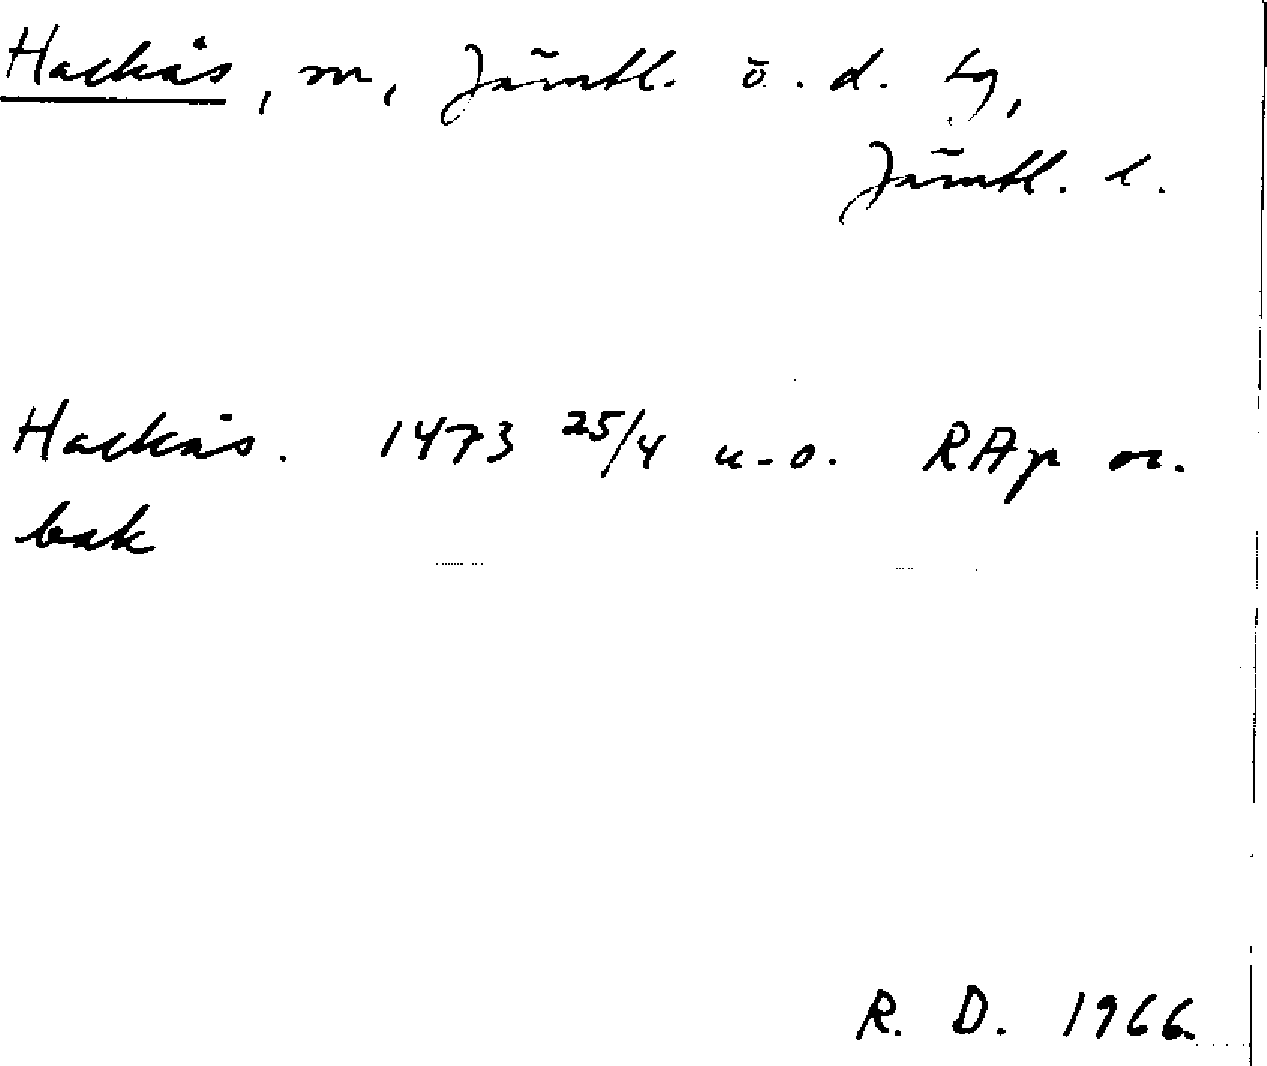 Hackås, m, Jämtl. ö. d. tg,
Jämtl. l.
Hackås. 1473 25/4 u.o. RAp or.
bak
R. D. 1966